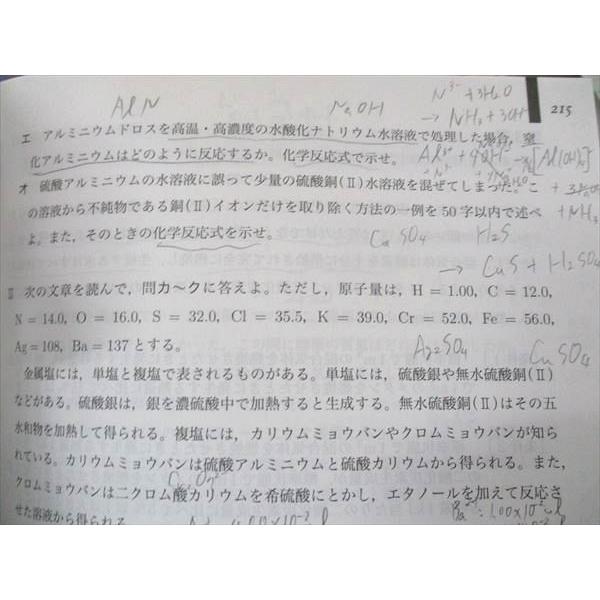 AlN NaOH N³⁻ + 3H₂O
→ NH₃ + 3OH⁻
215
エ アルミニウムドロスを高温・高濃度の水酸化ナトリウム水溶液で処理した場合，窒
化アルミニウムはどのように反応するか。化学反応式で示せ。
オ 硫酸アルミニウムの水溶液に誤って少量の硫酸銅(Ⅱ)水溶液を混ぜてしまった。こ
の溶液から不純物である銅(Ⅱ)イオンだけを取り除く方法の一例を50字以内で述べ
+ NH₃
よ。また，そのときの化学反応式を示せ。
CuSO₄ H₂S
→ CuS + H₂SO₄
次の文章を読んで，問カ〜クに答えよ。ただし，原子量は，H = 1.00，C = 12.0，
N = 14.0，O = 16.0，S = 32.0，Cl = 35.5，K = 39.0，Cr = 52.0，Fe = 56.0，
Ag = 108，Ba = 137とする。
Ag₂SO₄ CuSO₄
金属塩には，単塩と複塩で表されるものがある。単塩には，硫酸銀や無水硫酸銅(Ⅱ)
などがある。硫酸銀は，銀を濃硫酸中で加熱すると生成する。無水硫酸銅(Ⅱ)はその五
水和物を加熱して得られる。複塩には，カリウムミョウバンやクロムミョウバンが知ら
れている。カリウムミョウバンは硫酸アルミニウムと硫酸カリウムから得られる。また，
クロムミョウバンは二クロム酸カリウムを希硫酸にとかし，エタノールを加えて反応さ
せた溶液から得られる